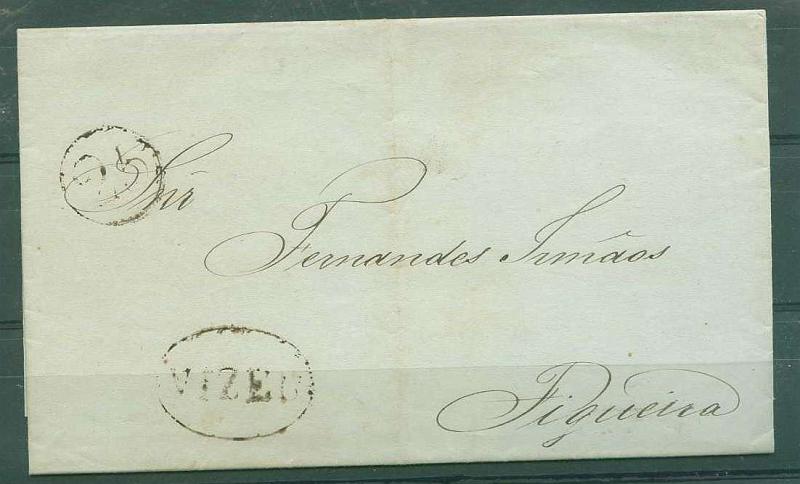 Snr
Fernandes Irmãos
VIZEU
Figueira